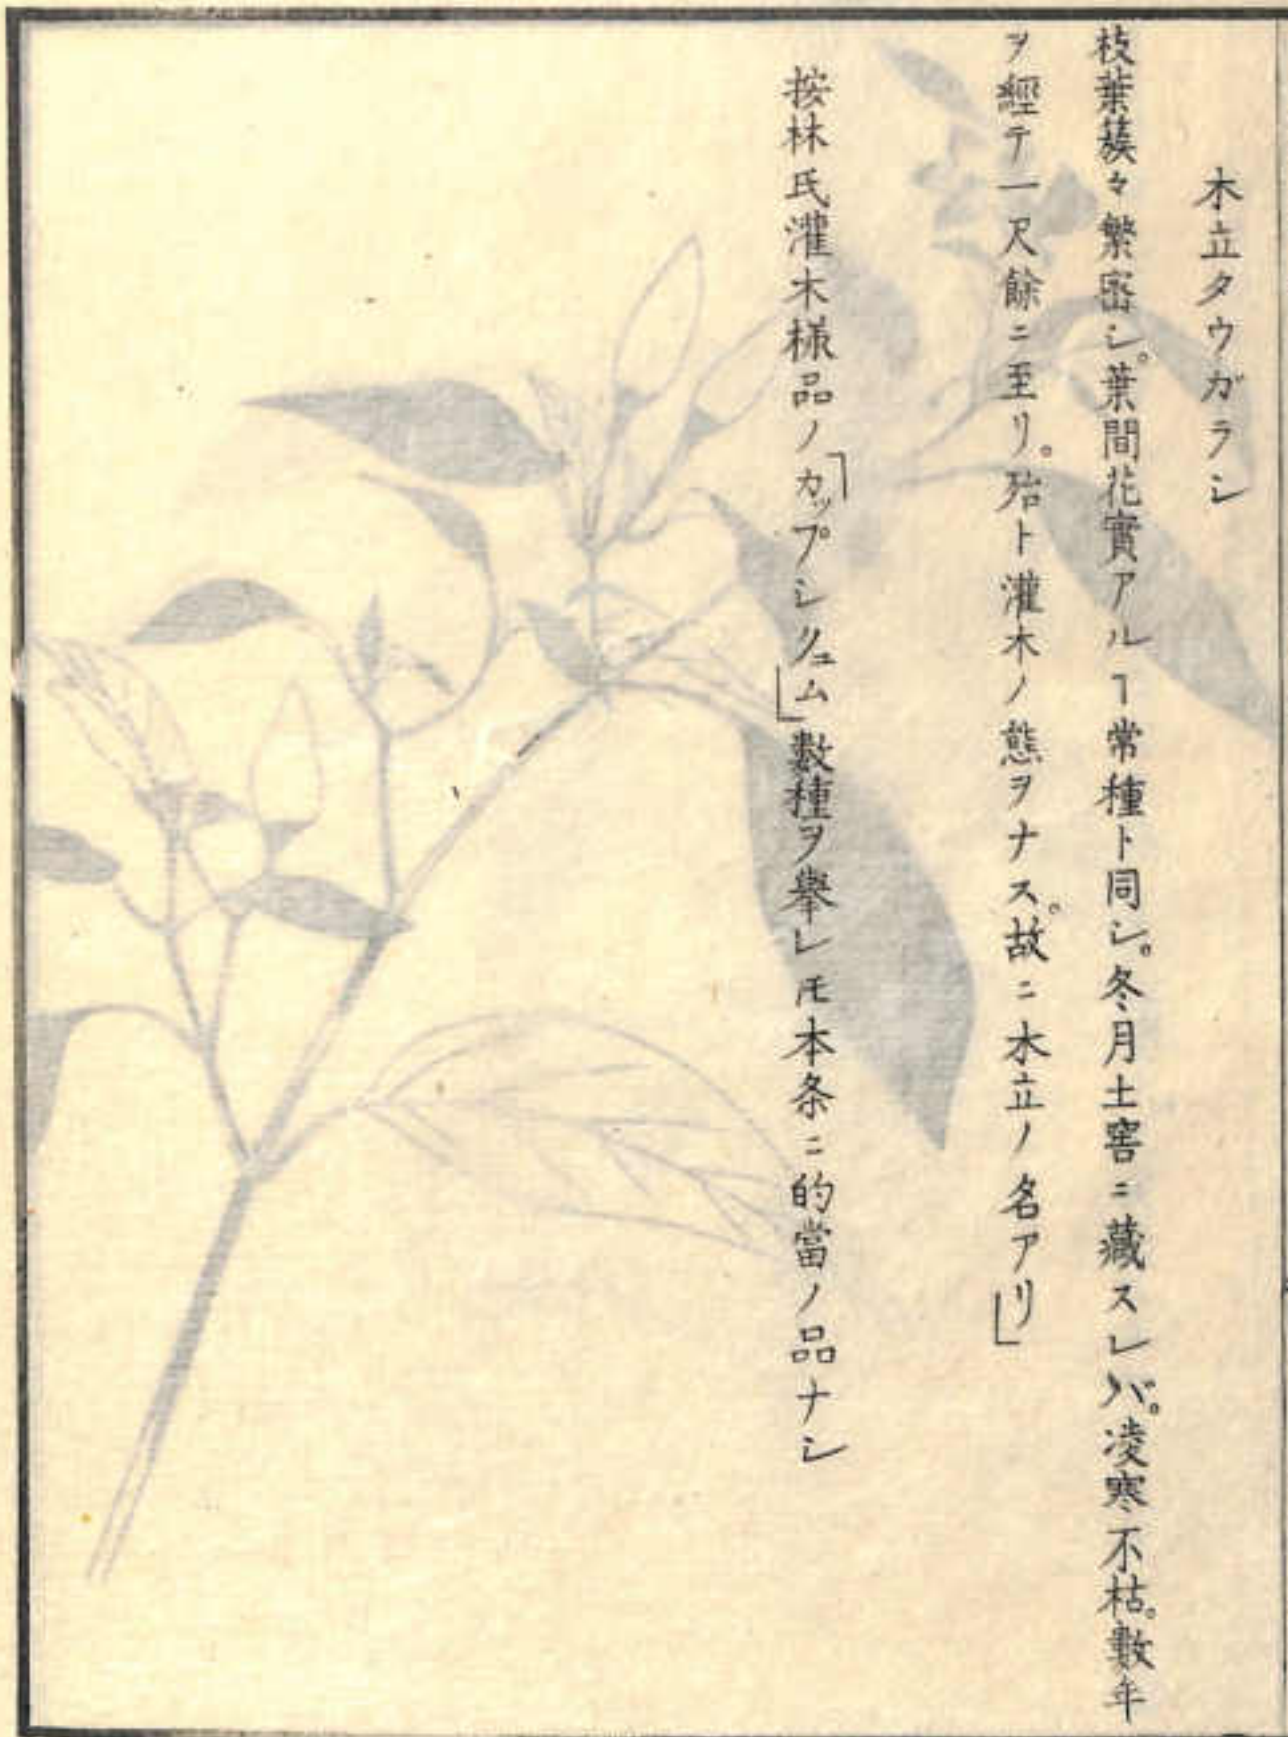 木立タウガラシ
枝葉蔟々繁密シ。葉間花實アルヿ常種ト同シ。冬月土窖ニ藏スレバ。凌寒不枯。數年
ヲ經テ一尺餘ニ至リ。殆ト灌木ノ態ヲナス。故ニ木立ノ名アリ」
按林氏灌木様品ノ「カップシキュム」數種ヲ擧レ𪜈本条ニ的當ノ品ナシ